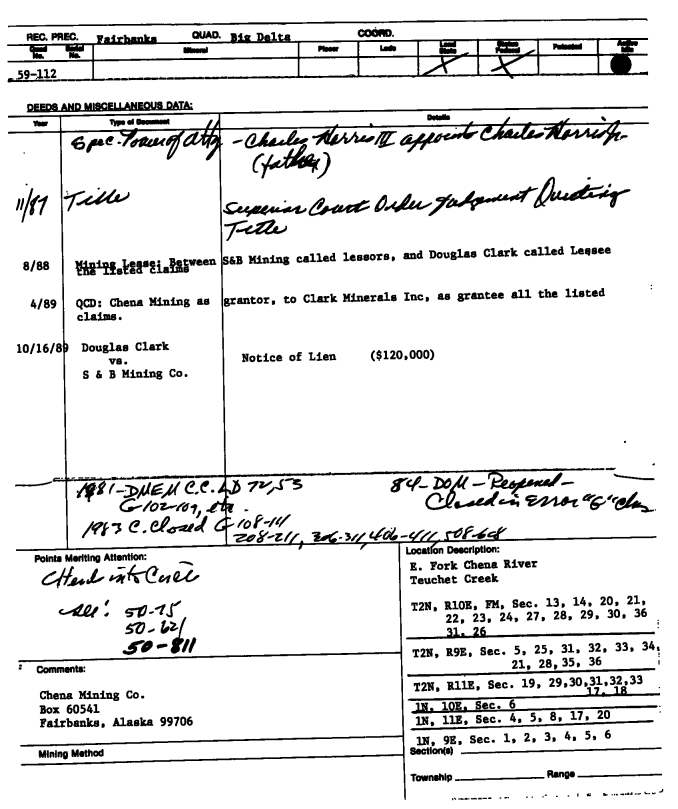 REC. PREC. Fairbanks QUAD. Big Delta COORD.
Quad No. Serial No. Mineral Placer Lode Land State Status Federal Patented Active
59-112
DEEDS AND MISCELLANEOUS DATA:
Year Type of Document Details
Spec. Power of Atty - Charles Harris III appoints Charles Harris Jr.
(father)
11/87 Title Superior Court Order Judgement Quieting
Title
8/88 Mining Lease: Between S&B Mining called lessors, and Douglas Clark called Lessee
the listed claims
4/89 QCD: Chena Mining as grantor, to Clark Minerals Inc, as grantee all the listed
claims.
10/16/89 Douglas Clark
vs. Notice of Lien ($120,000)
S & B Mining Co.
1981-DMEM C.C. LD 72, 53 84-DOM-Reopened-
G-102-109, etc. Closed in Error "G"
1983 C. Closed G 108-14
208-211, 306-311, 406-411, 508-
Points Meriting Attention:
see: 50-75
50-621
50-811
Comments:
Chena Mining Co.
Box 60541
Fairbanks, Alaska 99706
Mining Method
Location Description:
E. Fork Chena River
Teuchet Creek
T2N, R10E, FM, Sec. 13, 14, 20, 21,
22, 23, 24, 27, 28, 29, 30, 36
31, 26
T2N, R9E, Sec. 5, 25, 31, 32, 33, 34,
21, 28, 35, 36
T2N, R11E, Sec. 19, 29,30,31,32,33
17, 18
1N, 10E, Sec. 6
1N, 11E, Sec. 4, 5, 8, 17, 20
1N, 9E, Sec. 1, 2, 3, 4, 5, 6
Section(s)
Township Range